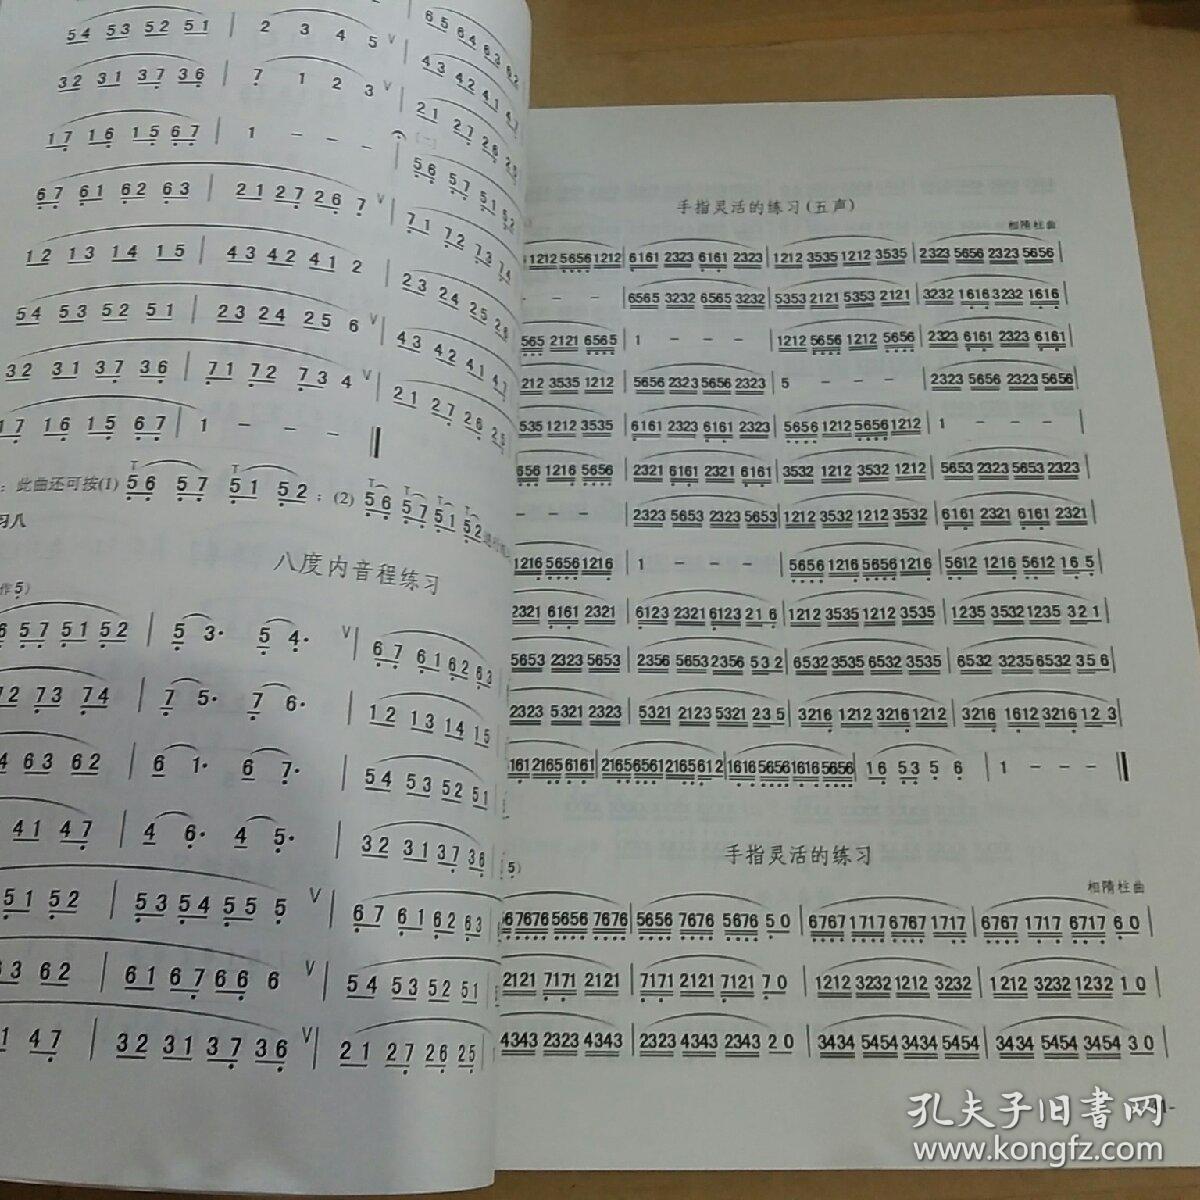 54 53 52 51 | 2 3 4 5 V
32 31 37 36 | 7 1 2 3 V
17 16 15 67 | 1 - - -
67 61 62 63 | 21 27 26 7 V
12 13 14 15 | 43 42 41 2
54 53 52 51 | 23 24 25 6 V
32 31 37 36 | 71 72 73 4 V
17 16 15 67 | 1 - - -
：此曲还可按(1) 56 57 51 52 ；(2) 56 57 51 52
习八
八度内音程练习
57 51 52 | 5 3· 5 4· V
73 74 | 7 5· 7 6·
63 62 | 6 1· 6 7·
41 47 | 4 6· 4 5·
51 52 | 53 54 55 5 V
62 | 61 67 66 6 V
47 | 32 31 37 36 V
65 64 63 62
43 42 41 47
21 27 26 25
56 57 51 52
71 72 73 74
23 24 25 26
43 42 41 47
21 27 26 25
67 61 62 63
12 13 14 15
54 53 52 51
32 31 37 36
67 61 62 63
54 53 52 51
21 27 26 25
手指灵活的练习(五声)
相隋柱曲
1212 5656 1212 | 6161 2323 6161 2323 | 1212 3535 1212 3535 | 2323 5656 2323 5656
- - - | 6565 3232 6565 3232 | 5353 2121 5353 2121 | 3232 1616 3232 1616
565 2121 6565 | 1 - - - | 1212 5656 1212 5656 | 2323 6161 2323 6161
212 3535 1212 | 5656 2323 5656 2323 | 5 - - - | 2323 5656 2323 5656
535 1212 3535 | 6161 2323 6161 2323 | 5656 1212 5656 1212 | 1 - - -
656 1216 5656 | 2321 6161 2321 6161 | 3532 1212 3532 1212 | 5653 2323 5653 2323
- - - | 2323 5653 2323 5653 | 1212 3532 1212 3532 | 6161 2321 6161 2321
1216 5656 1216 | 1 - - - | 5656 1216 5656 1216 | 5612 1216 5612 16 5
2321 6161 2321 | 6123 2321 6123 21 6 | 1212 3535 1212 3535 | 1235 3532 1235 32 1
5653 2323 5653 | 2356 5653 2356 53 2 | 6532 3535 6532 3535 | 6532 3235 6532 35 6
2323 5321 2323 | 5321 2123 5321 23 5 | 3216 1212 3216 1212 | 3216 1612 3216 12 3
6161 2165 6161 | 2165 6561 2165 61 2 | 1616 5656 1616 5656 | 16 53 5 6 | 1 - - -
手指灵活的练习
相隋柱曲
7676 5656 7676 | 5656 7676 5676 50 | 6767 1717 6767 1717 | 6767 1717 6717 60
2121 7171 2121 | 7171 2121 7121 70 | 1212 3232 1212 3232 | 1212 3232 1232 10
4343 2323 4343 | 2323 4343 2343 20 | 3434 5454 3434 5454 | 3434 5454 3454 30
孔夫子旧書网
www.kongfz.com